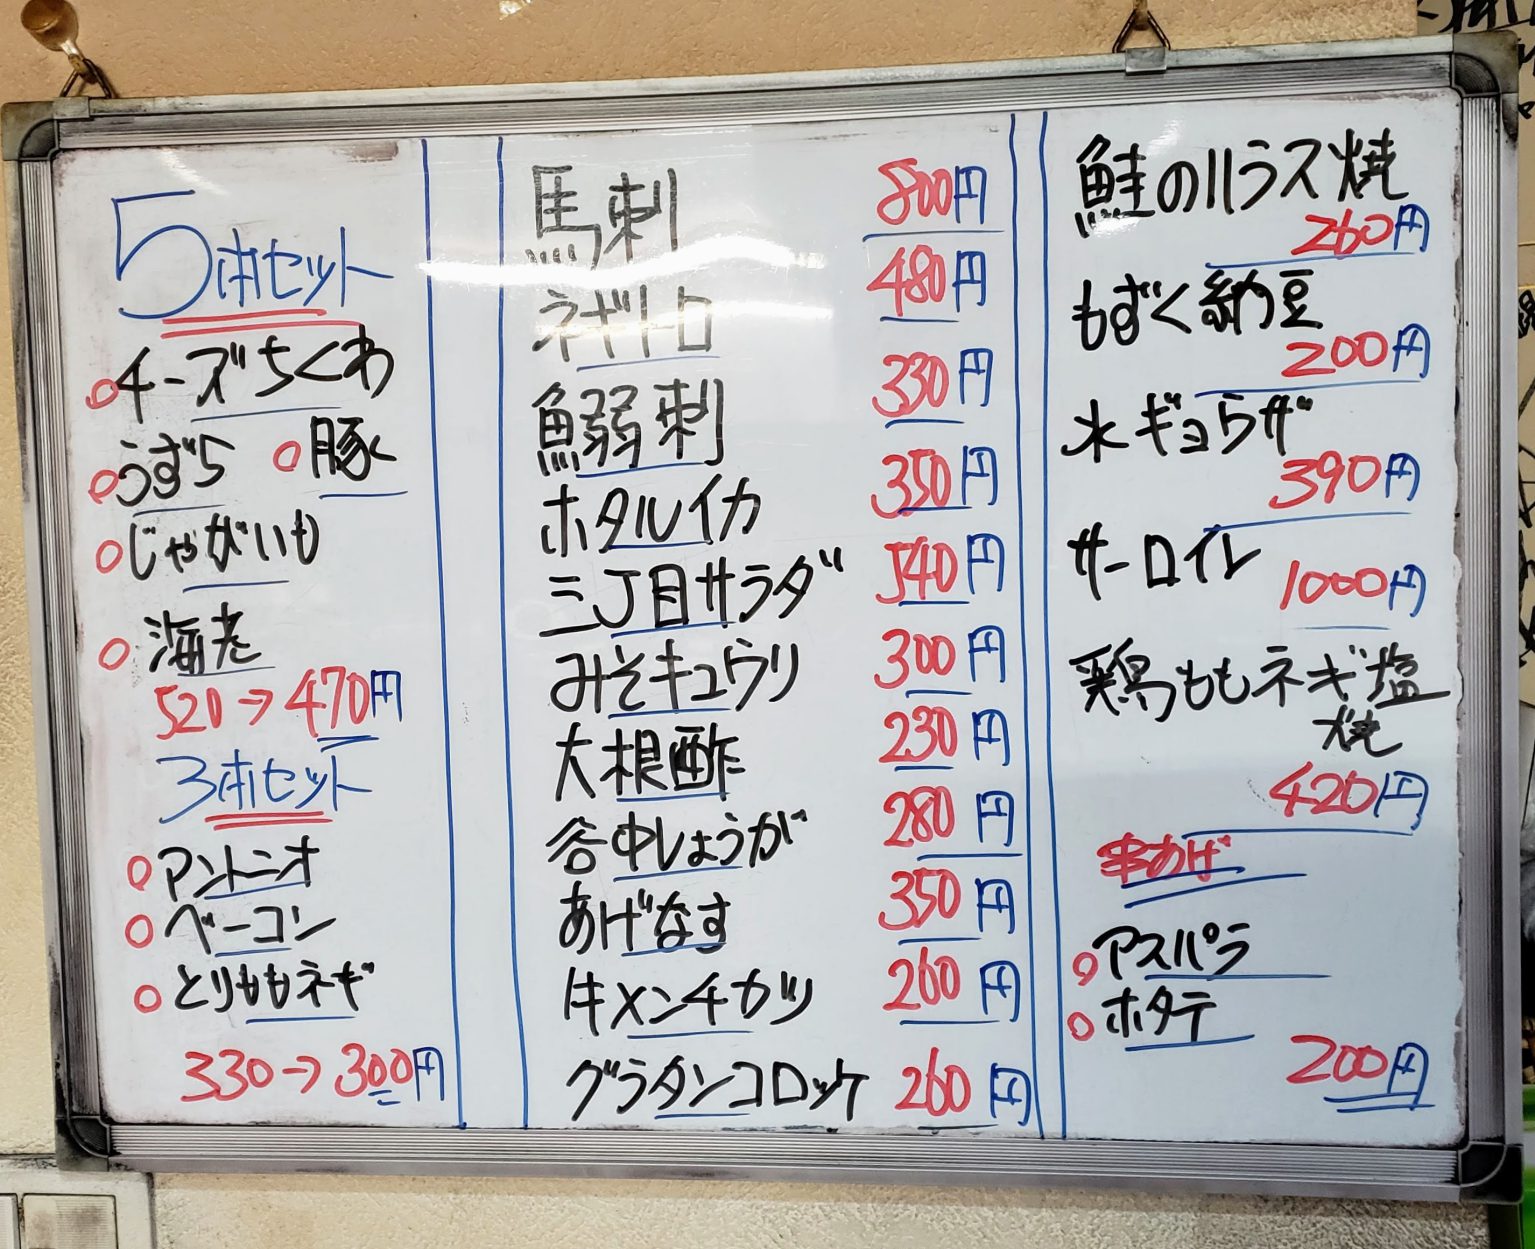 5本セット
○チーズちくわ
○うずら ○豚
○じゃがいも
○海老
520→470円
3本セット
○アントニオ
○ベーコン
○とりももネギ
330→300円
馬刺 800円
ネギトロ 480円
鰯刺 330円
ホタルイカ 350円
三丁目サラダ 540円
みそキュウリ 300円
大根酢 230円
谷中しょうが 280円
あげなす 350円
牛メンチカツ 260円
グラタンコロッケ 260円
鮭のハラス焼
260円
もずく納豆
200円
水ギョウザ
390円
サーロイン
1000円
鶏ももネギ塩
焼
420円
串あげ
○アスパラ
○ホタテ
200円